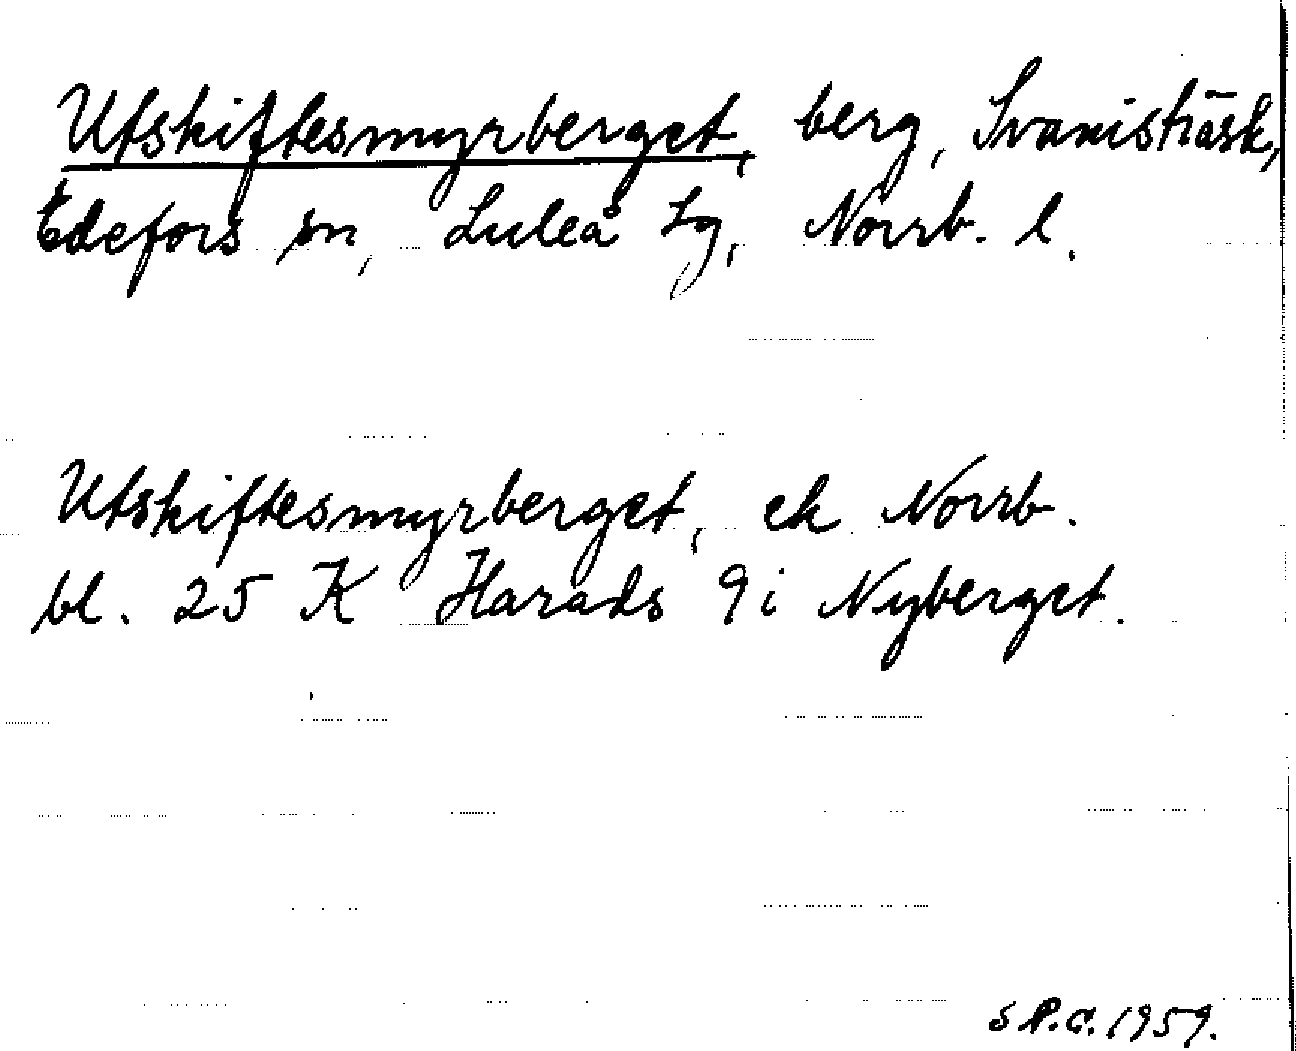 Utskiftesmyrberget, berg, Svanisträsk,
Edefors sn, Luleå tg, Norrb. l.
Utskiftesmyrberget, ek Norrb.
bl. 25 K Harads 9 i Nyberget.
S P.C. 1959.